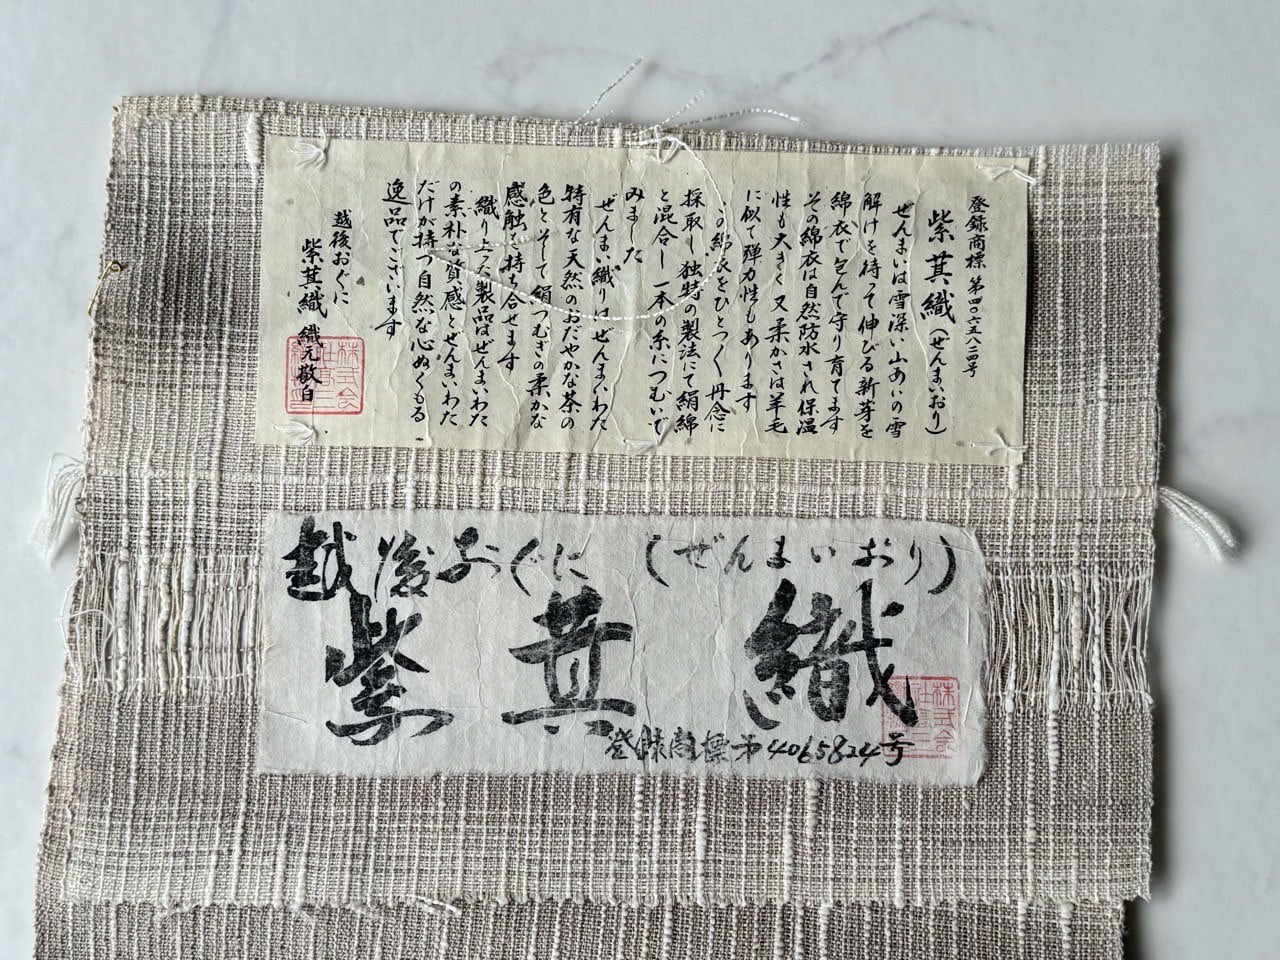 登録商標 第四〇六五八二四号
紫萁織（ぜんまいおり）
ぜんまいは雪深い山あいの雪
解けを待って伸びる新芽を
綿衣で包んで守り育てます
その綿衣は自然防水され保温
性も大きく又柔かさは羊毛
に似て弾力性もあります
この綿衣をひとつ〳〵丹念に
採取し独特の製法にて絹綿
と混合し一本の糸につむいで
みました
ぜんまい織りはぜんまいわた
特有な天然のおだやかな茶の
色とそして絹つむぎの柔かな
感触を持ち合せます
織り上った製品はぜんまいわた
の素朴な質感とぜんまいわた
だけが持つ自然な心ぬくもる
逸品でございます
越後おぐに
紫萁織 織元敬白
株式会
越後おぐに（ぜんまいおり）
紫萁織
登録商標第4065824号
株式会